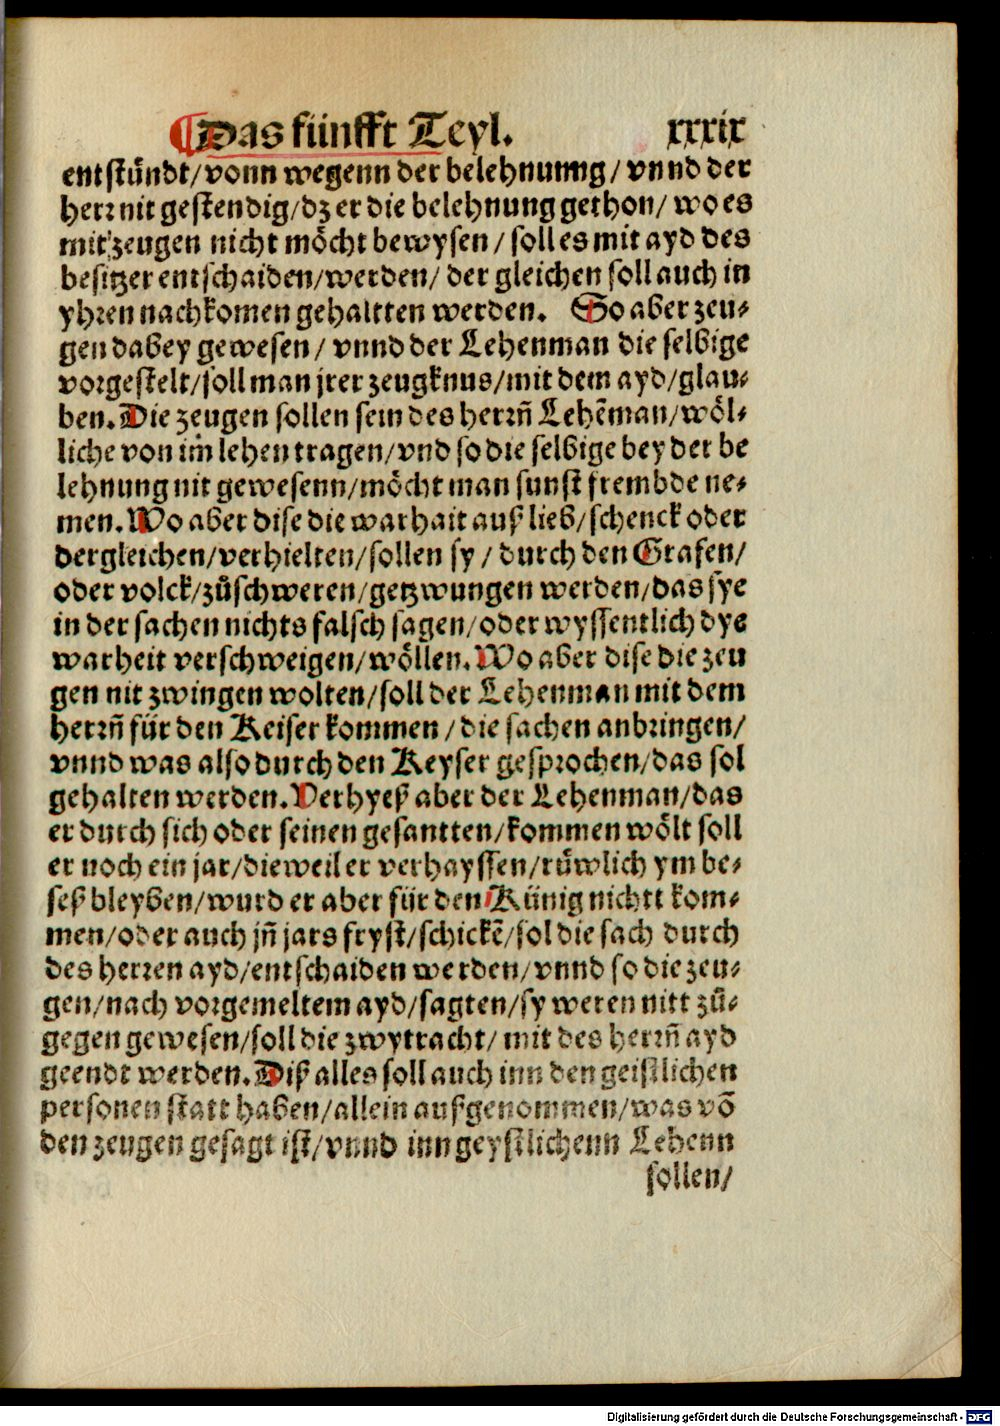 ¶Das fünfft Teyl. xxxix
entstündt/vonn wegenn der belehnunng/vnnd der
herr nit gestendig/dz er die belehnung gethon/wo es
mit zeugen nicht möcht bewysen/soll es mit ayd des
besitzer entschaiden/werden/der gleichen soll auch in
yhren nachkomen gehaltten werden. So aber zeu⸗
gen dabey gewesen/vnnd der Lehenman die selbige
vorgestelt/soll man jrer zeugknus/mit dem ayd/glau⸗
ben. Die zeugen sollen sein des herrñ Lehẽman/wöl⸗
liche von im̃ lehen tragen/vnd so die selbige bey der be
lehnung nit gewesenn/möcht man sunst frembde ne⸗
men. Wo aber dise die warhait auß lieb/schenck oder
dergleichen/verhielten/sollen sy/durch den Grafen/
oder volck/zůschweren/getzwungen werden/das sye
in der sachen nichts falsch sagen/oder wyssentlich dye
warheit verschweigen/wöllen. Wo aber dise die zeu
gen nit zwingen wolten/soll der Lehenman mit dem
herrñ für den Keiser kommen/die sachen anbringen/
vnnd was also durch den Keyser gesprochen/das sol
gehalten werden. Verhyeß aber der Lehenman/das
er durch sich oder seinen gesantten/kommen wölt soll
er noch ein jar/dieweil er verhayssen/rüwlich ym be⸗
seß bleyben/wurd er aber für den Künig nichtt kom⸗
men/oder auch jñ jars fryst/schickẽ/sol die sach durch
des herren ayd/entschaiden werden/vnnd so die zeu⸗
gen/nach vorgemeltem ayd/sagten/sy weren nitt zů⸗
gegen gewesen/soll die zwytracht/mit des herrñ ayd
geendt werden. Diß alles soll auch inn den geistlichen
personen statt haben/allein außgenommen/was võ
den zeugen gesagt ist/vnnd inn geystlichenn Lehenn
sollen/
Digitalisierung gefördert durch die Deutsche Forschungsgemeinschaft - DFG